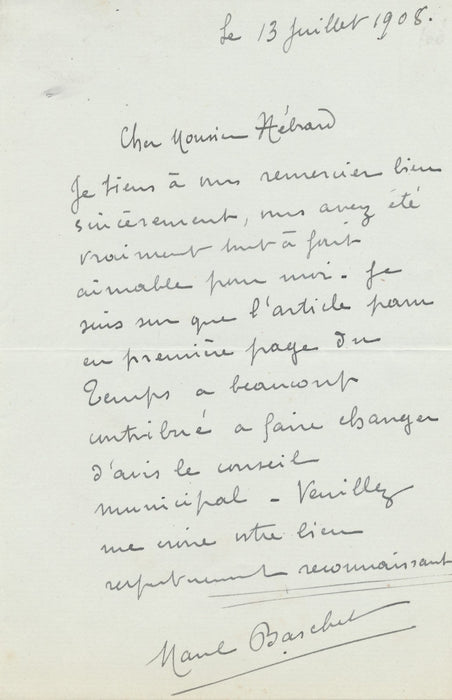 Le 13 Juillet 1908.
Cher Monsieur Hébrard
Je tiens à vous remercier bien
sincèrement, vous avez été
vraiment tout à fait
aimable pour moi - Je
suis sur que l'article paru
en première page du
Temps a beaucoup
contribué a faire changer
d'avis le conseil
municipal - Veuillez
me croire votre bien
respectueusement reconnaissant
Marcel Baschet